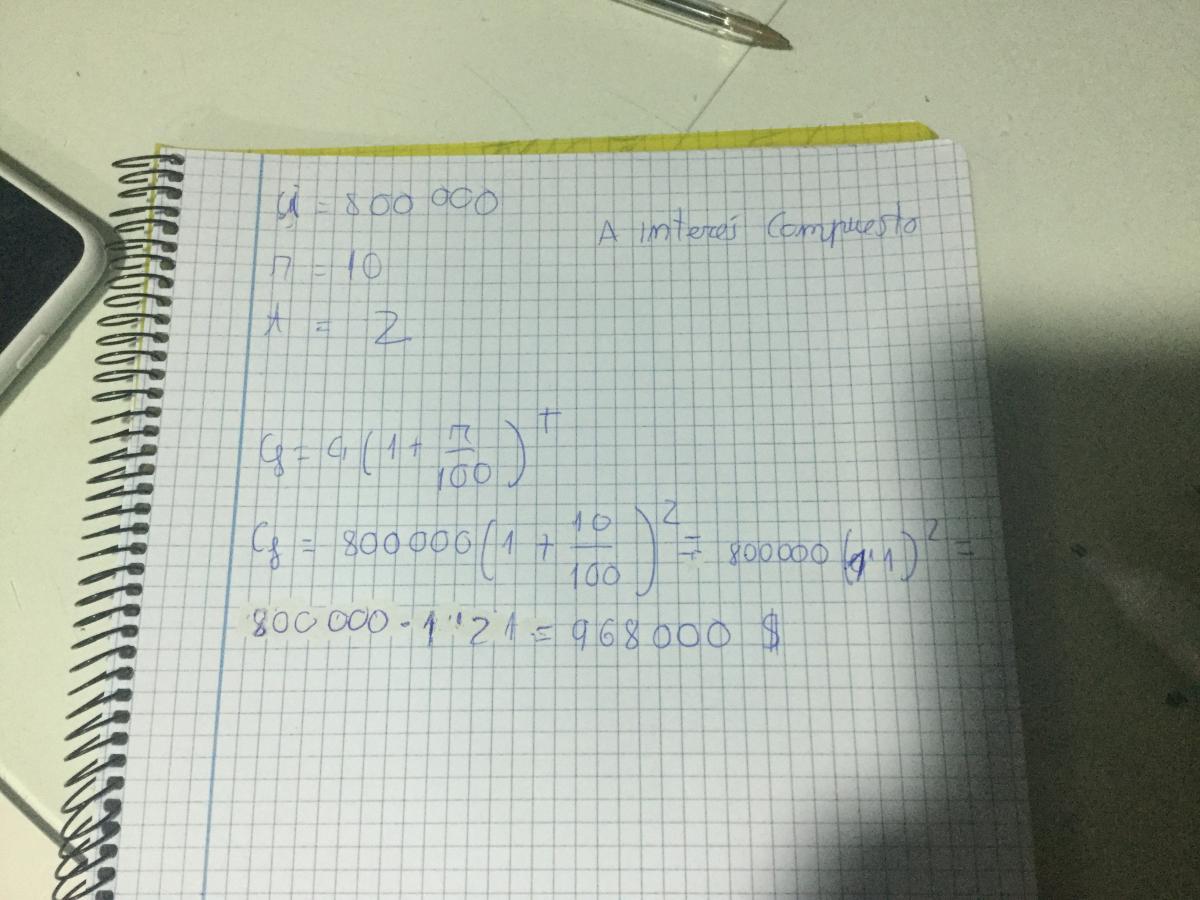 Ci = 800 000
A interés Compuesto
r = 10
t = 2
Cf = Ci (1 + r/100)^t
Cf = 800000 (1 + 10/100)^2 = 800000 (1'1)^2 =
800 000 · 1'21 = 968 000 $